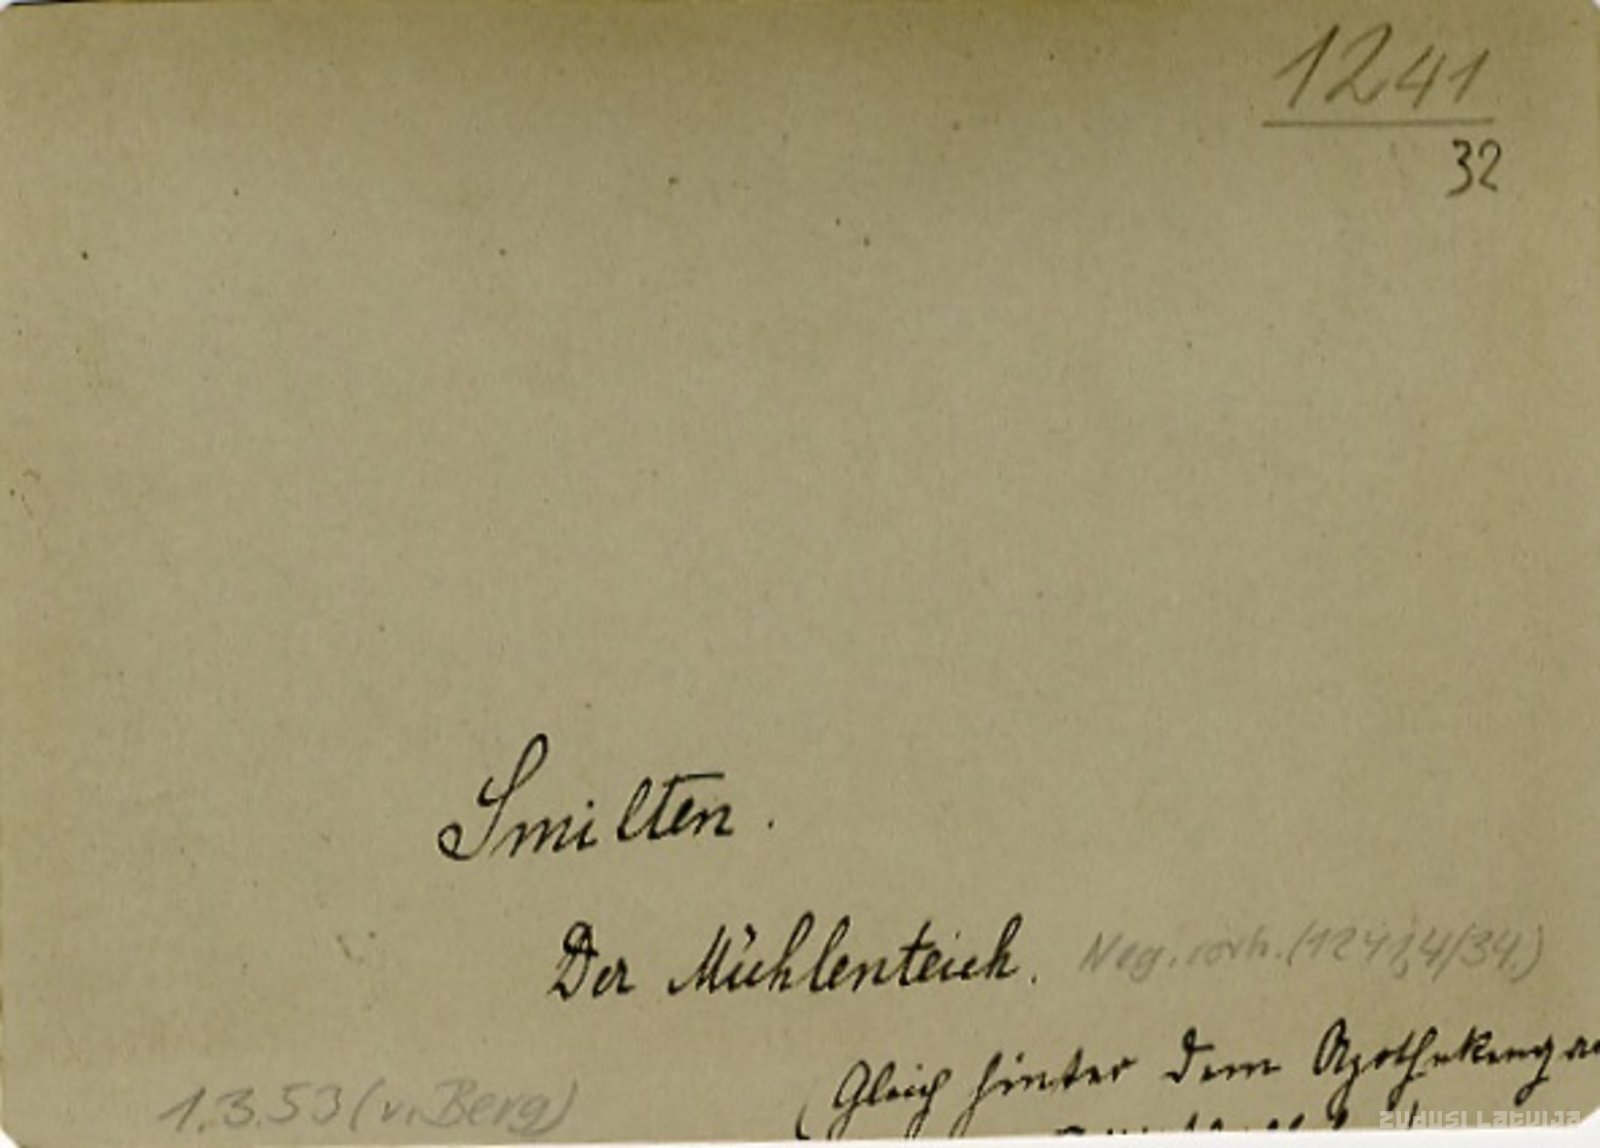 1241
32
Smilten.
Der Mühlenteich. Neg. vorh. (1241,4/34.)
(Gleich hinter dem
1.3.53 (v. Berg)
zudusi latvija